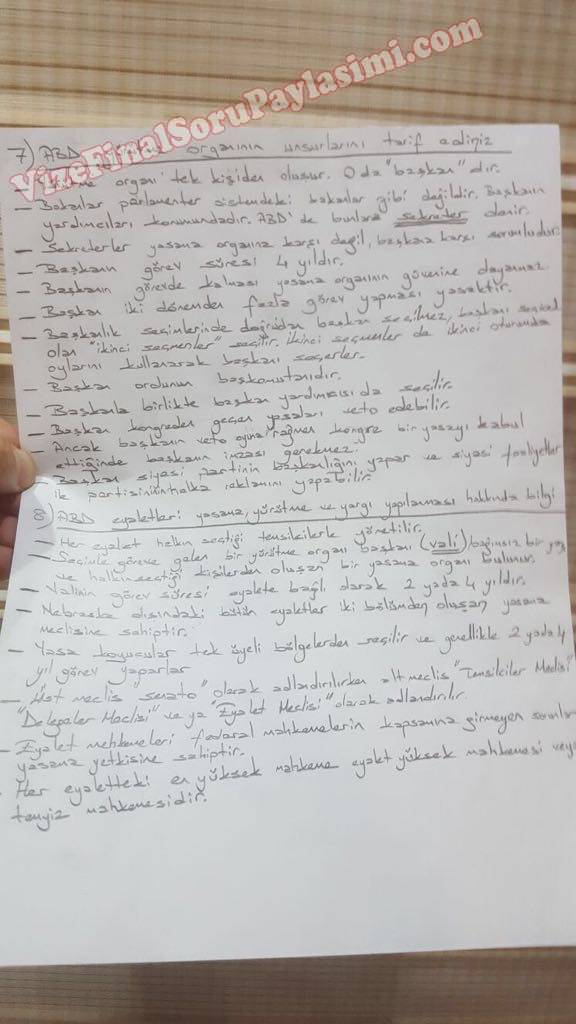 VizeFinalSoruPaylasimi.com
7) ABD organının unsurlarını tarif ediniz
- Yürütme organı tek kişiden oluşur. O da "başkan" dır.
- Bakanlar parlamenter sistemdeki bakanlar gibi değildir. Başkanın
yardımcıları konumundadır. ABD' de bunlara sekreter denir.
- Sekreterler yasama organına karşı değil, başkana karşı sorumludur.
- Başkanın görev süresi 4 yıldır.
- Başkanın görevde kalması yasama organının güvenine dayanmaz.
- Başkan iki dönemden fazla görev yapması yasaktır.
- Başkanlık seçimlerinde doğrudan başkan seçilmez, başkanı seçecek
olan "ikinci seçmenler" seçilir. İkinci seçmenler de ikinci oturumda
oylarını kullanarak başkanı seçerler.
- Başkan ordunun başkomutanıdır.
- Başkanla birlikte başkan yardımcısı da seçilir.
- Başkan kongreden geçen yasaları veto edebilir.
- Ancak başkanın veto oyuna rağmen kongre bir yasayı kabul
ettiğinde başkanın imzası gerekmez.
- Başkan siyasi partinin başkanlığını yapar ve siyasi faaliyetler
ile partisinin halka reklamını yapabilir.
8) ABD eyaletleri yasama, yürütme ve yargı yapılaması hakkında bilgi
- Her eyalet halkın seçtiği temsilcilerle yönetilir.
- Seçimle göreve gelen bir yürütme organı başkanı (vali) bağımsız bir
ve halkın seçtiği kişilerden oluşan bir yasama organı bulunur.
- Valinin görev süresi eyalete bağlı olarak 2 yada 4 yıldır.
- Nebraska dışındaki bütün eyaletler iki bölümden oluşan yasama
meclisine sahiptir.
- Yasa koyucular tek üyeli bölgelerden seçilir ve genellikle 2 yada 4
yıl görev yaparlar
- Üst meclis "senato" olarak adlandırılırken alt meclis "Temsilciler Meclisi"
"Delegeler Meclisi" ve ya "Eyalet Meclisi" olarak adlandırılır.
- Eyalet mehkemeleri federal mahkemelerin kapsamına girmeyen
yasama yetkisine sahiptir.
- Her eyaletteki en yüksek mahkeme eyalet yüksek mahkemesi veya
temyiz mahkemesidir.